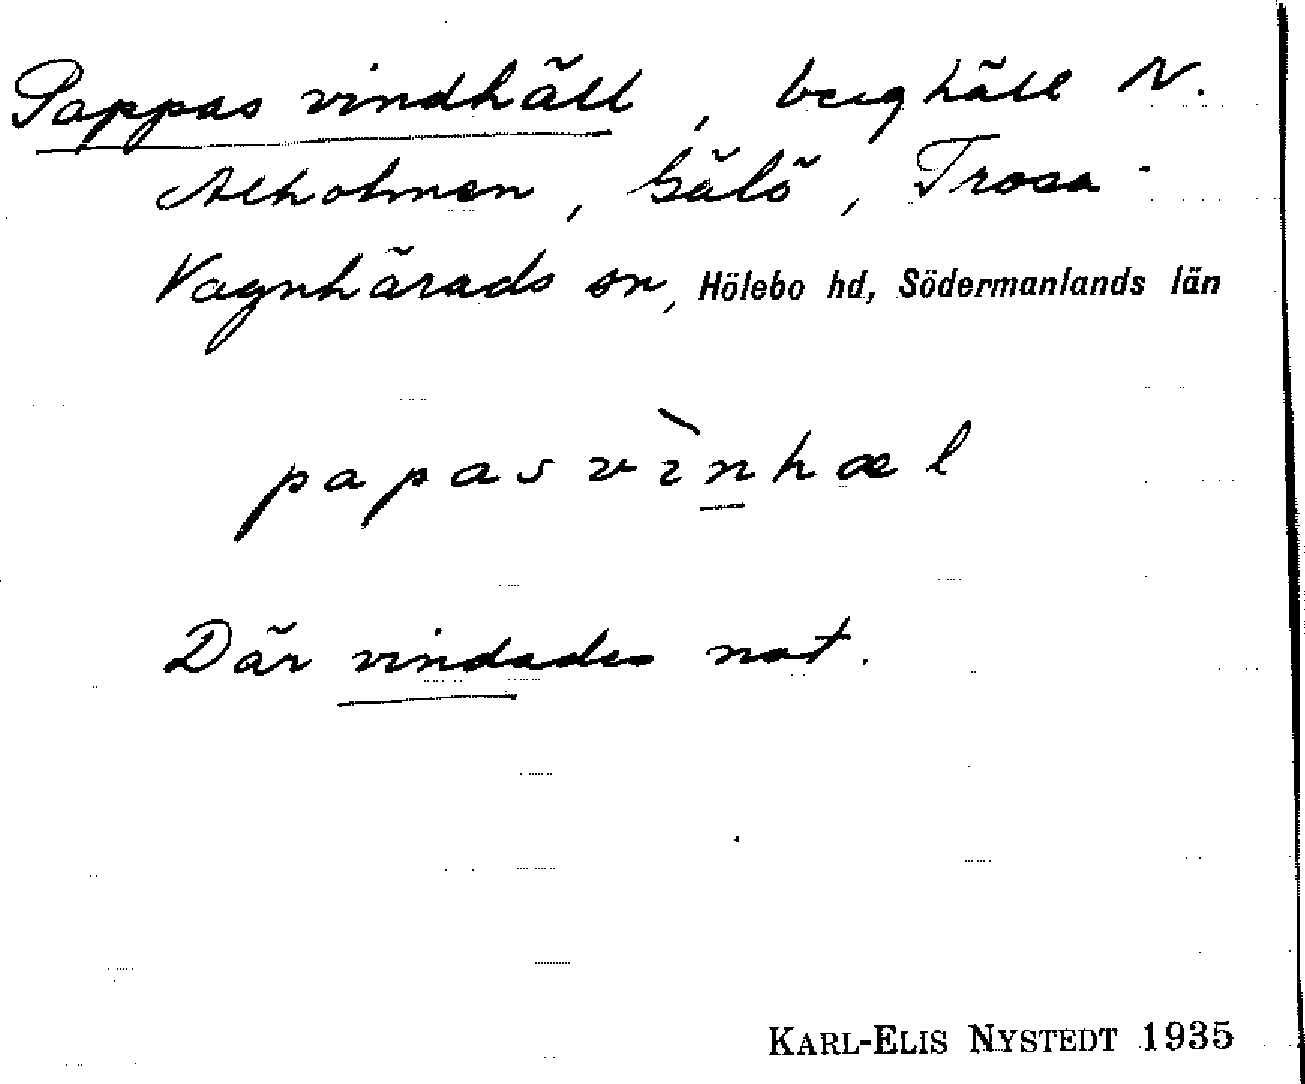 Pappas vindhäll, berghäll N.
Alholmen, Gälö, Trosa-
Vagnhärads sn, Hölebo hd, Södermanlands län
papasvìnhæl
Där vindades not.
KARL-ELIS NYSTEDT 1935